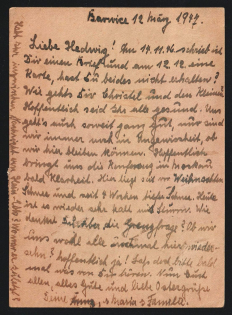 Barwice 12 März 1947.
Liebe Hedwig! Am 19.11.46 schrieb ich
Dir einen Brief und am 12.12 eine
Karte, hast Du beides nicht erhalten?
Wie gehts Dir Christel und den Kleinen
Hoffentlich seid Ihr alle gesund. Uns
geht's auch soweit ganz gut, nur sind
wir immer noch in Ungewissheit, ob
wir hier bleiben können. Hoffentlich
bringt nun die Konferenz in Moskau
bald Klarheit. Hier liegt seit Weihnachten
Schnee und seit 4 Wochen tiefer Schnee. Heute
ist es wieder sehr kalt mit Sturm. Wie
denkst Du über die Grenzfrage? Ob wir
uns wohl alle einmal hier wieder-
sehn? hoffentlich ja! Lass doch bitte bald
mal was von Dir hören. Nun Euch
allen, alles Gute und liebe Ostergrüße
Deine Anna, Maria & Familie.